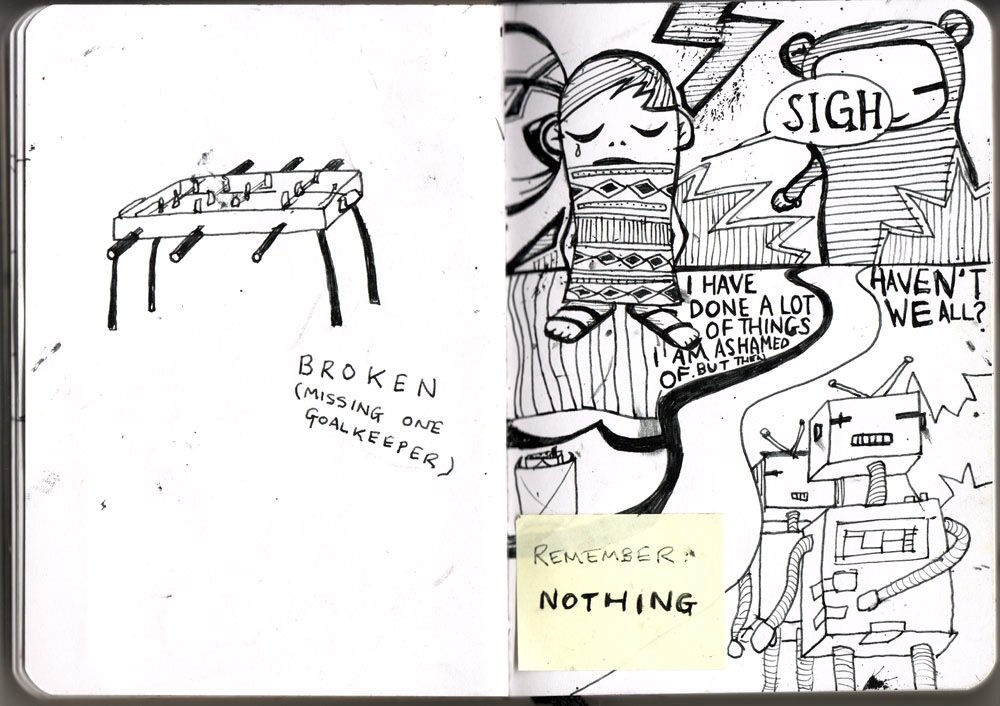 BROKEN
(MISSING ONE
GOALKEEPER)
SIGH
I HAVE
DONE A LOT
OF THINGS
I AM ASHAMED
OF. BUT THEN
HAVEN'T
WE ALL?
REMEMBER:
NOTHING